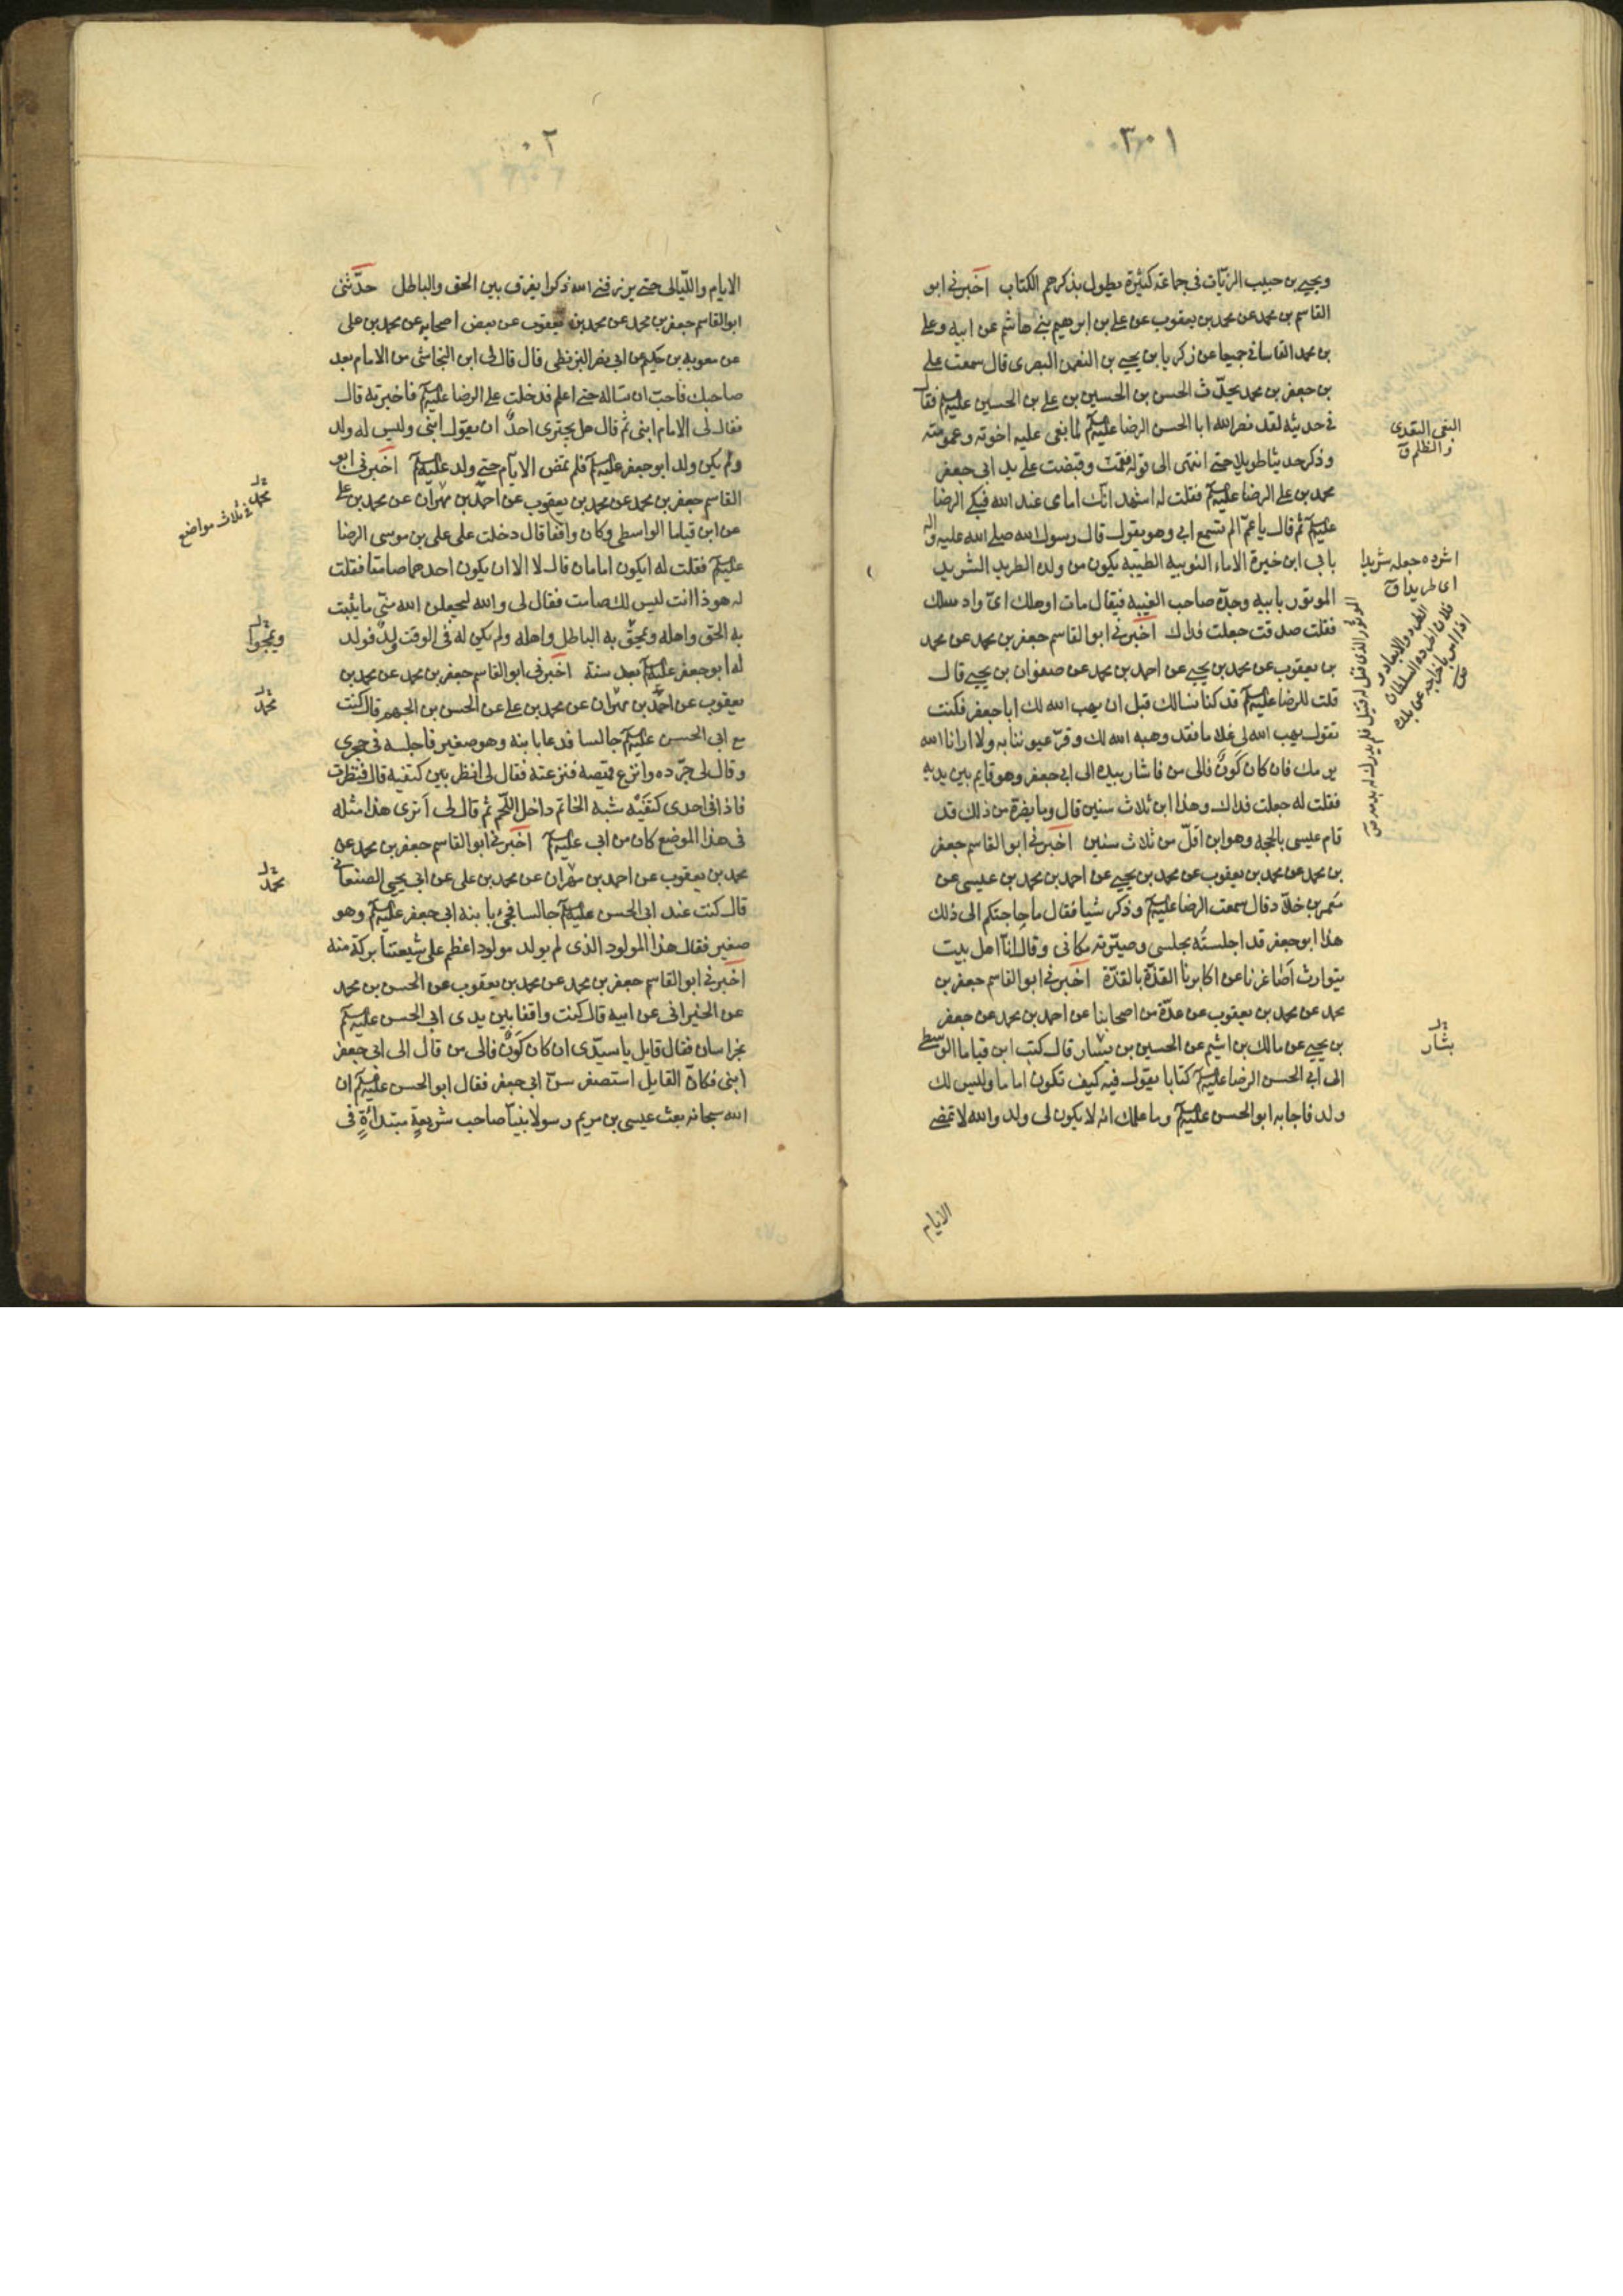 ٣٠١
ويحيى بن حبيب الزيّات في جماعة كثيرة يطول بذكرهم الكتاب اخبرني ابو
القاسم بن محمد عن محمد بن يعقوب عن علي بن ابرهيم بن هاشم عن ابيه وعلي
بن محمد القاساني جميعا عن زكريا بن يحيى بن النعمن البصرى قال سمعت علي
بن جعفر بن محمد يحدّث الحسن بن الحسين بن علي بن الحسين عليهم فقال
في حديثه لقد نصر الله ابا الحسن الرضا عليه لما بغى عليه اخوته وعمومته
وذكر حديثا طويلا حتى انتهى الى قوله فقمت وقبضت على يد ابي جعفر
محمد بن علي الرضا عليه فقلت له اشهد انّك امامى عند الله فبكى الرضا
عليه ثم قال يا عمّ الم تسمع ابي وهو يقول قال رسول الله صلى الله عليه واله
بابي ابن خيرة الاماء النوبيه الطيبه يكون من ولده الطريد الشريد
الموتور بابيه وجدّه صاحب الغيبة فيقال مات او هلك اىّ واد سلك
فقلت صدقت جعلت فداك اخبرني ابو القاسم جعفر بن محمد عن محمد
بن يعقوب عن محمد بن يحيى عن احمد بن محمد عن صفوان بن يحيى قال
قلت للرضا عليه قد كنا نسالك قبل ان يهب الله لك ابا جعفر فكنت
تقول يهب الله لى غلاما فقد وهبه الله لك وقرّ عيوننا به ولا ارانا الله
يومك فان كان كَونٌ فالى من فاشار بيده الى ابي جعفر وهو قايم بين يديه
فقلت له جعلت فداك وهذا ابن ثلاث سنين قال وما يضرّه من ذلك قد
قام عيسى بالحجة وهو ابن اقلّ من ثلاث سنين اخبرني ابو القاسم جعفر
بن محمد عن محمد بن يعقوب عن محمد بن يحيى عن احمد بن محمد بن عيسى عن
معمر بن خلّاد قال سمعت الرضا عليه وذكر شيا فقال ما حاجتكم الى ذلك
هذا ابو جعفر قد اجلسته مجلسى وصيّرته مكانى وقال انّا اهل بيت
يتوارث اصاغرنا عن اكابرنا القذّة بالقذّة اخبرني ابو القاسم جعفر بن
محمد عن محمد بن يعقوب عن عدّة من اصحابنا عن احمد بن محمد عن جعفر
بن يحيى عن مالك بن اشيم عن الحسين بن يسار قال كتب ابن قياما الواسطى
الى ابي الحسن الرضا عليه كتابا يقول فيه كيف تكون اماما وليس لك
ولد فاجابه ابو الحسن عليه وما علمك انه لا يكون لى ولد والله لا تمضى
الايام
البغى التعدى
والظلم ق
اشرده جعله شريدا
اى طريدا ق
الطرد والابعاد ق
فلان اطرده السلطان
اذا امر باخراجه عن بلده
الموتور الذى قتل له قتيل فلم يدرك بدمه ص
بشار
٠٢
الايام والليالى حتى يرزقنى الله ذكرا يفرق بين الحق والباطل حدّثنى
ابو القاسم جعفر بن محمد عن محمد بن يعقوب عن بعض اصحابه عن محمد بن على
عن معوية بن حكيم عن ابي نصر البزنطى قال قال لى ابن النجاشى من الامام بعد
صاحبك فاحبّ ان تساله حتى اعلم فدخلت على الرضا عليه فاخبرته قال
فقال لى الامام ابنى ثم قال هل يجترى احدٌ ان يقول ابنى وليس له ولد
ولم يكن ولد ابو جعفر عليه فلم تمض الايام حتى ولد عليه اخبرني ابو
القاسم جعفر بن محمد عن محمد بن يعقوب عن احمد بن مهران عن محمد بن علي
عن ابن قياما الواسطى وكان واقفا قال دخلت على على بن موسى الرضا
عليه فقلت له ايكون امامان قال لا الا ان يكون احدهما صامتا فقلت
له هوذا انت ليس لك صامت فقال لى والله ليجعلن الله منّى ما يثبت
به الحق واهله ويمحق به الباطل واهله ولم يكن له فى الوقت ولدٌ فولد
له ابو جعفر عليه بعد سنة اخبرني ابو القاسم جعفر بن محمد عن محمد بن
يعقوب عن احمد بن مهران عن محمد بن علي عن الحسن بن الجهم قال كنت
مع ابى الحسن عليه جالسا فدعا بابنه وهو صغير فاجلسه فى حجرى
وقال لى جرّده وانزع قميصه فنزعته فقال لى انظر بين كتفيه قال فنظرت
فاذا فى احدى كتفَيْه شبه الخاتم داخل اللّحم ثم قال لى أترى هذا مثله
فى هذا الموضع كان من ابي عليه اخبرني ابو القاسم جعفر بن محمد عن
محمد بن يعقوب عن احمد بن مهران عن محمد بن على عن ابى يحيى الصنعانى
قال كنت عند ابى الحسن عليه جالسا فجىء بابنه ابى جعفر عليه وهو
صغير فقال هذا المولود الذى لم يولد مولود اعظم على شيعتنا بركة منه
اخبرني ابو القاسم جعفر بن محمد عن محمد بن يعقوب عن الحسن بن محمد
عن الخيرانى عن ابيه قال كنت واقفا بين يدى ابى الحسن عليه
بخراسان فقال قايل يا سيّدى ان كان كَونٌ فالى من قال الى ابى جعفر
ابنى فكانّ القايل استصغر سنّ ابى جعفر فقال ابو الحسن عليه ان
الله سبحانه بعث عيسى بن مريم رسولا نبيّا صاحب شريعةٍ مبتدأةٍ فى
محمد فى ثلاث مواضع
محمد
محمد